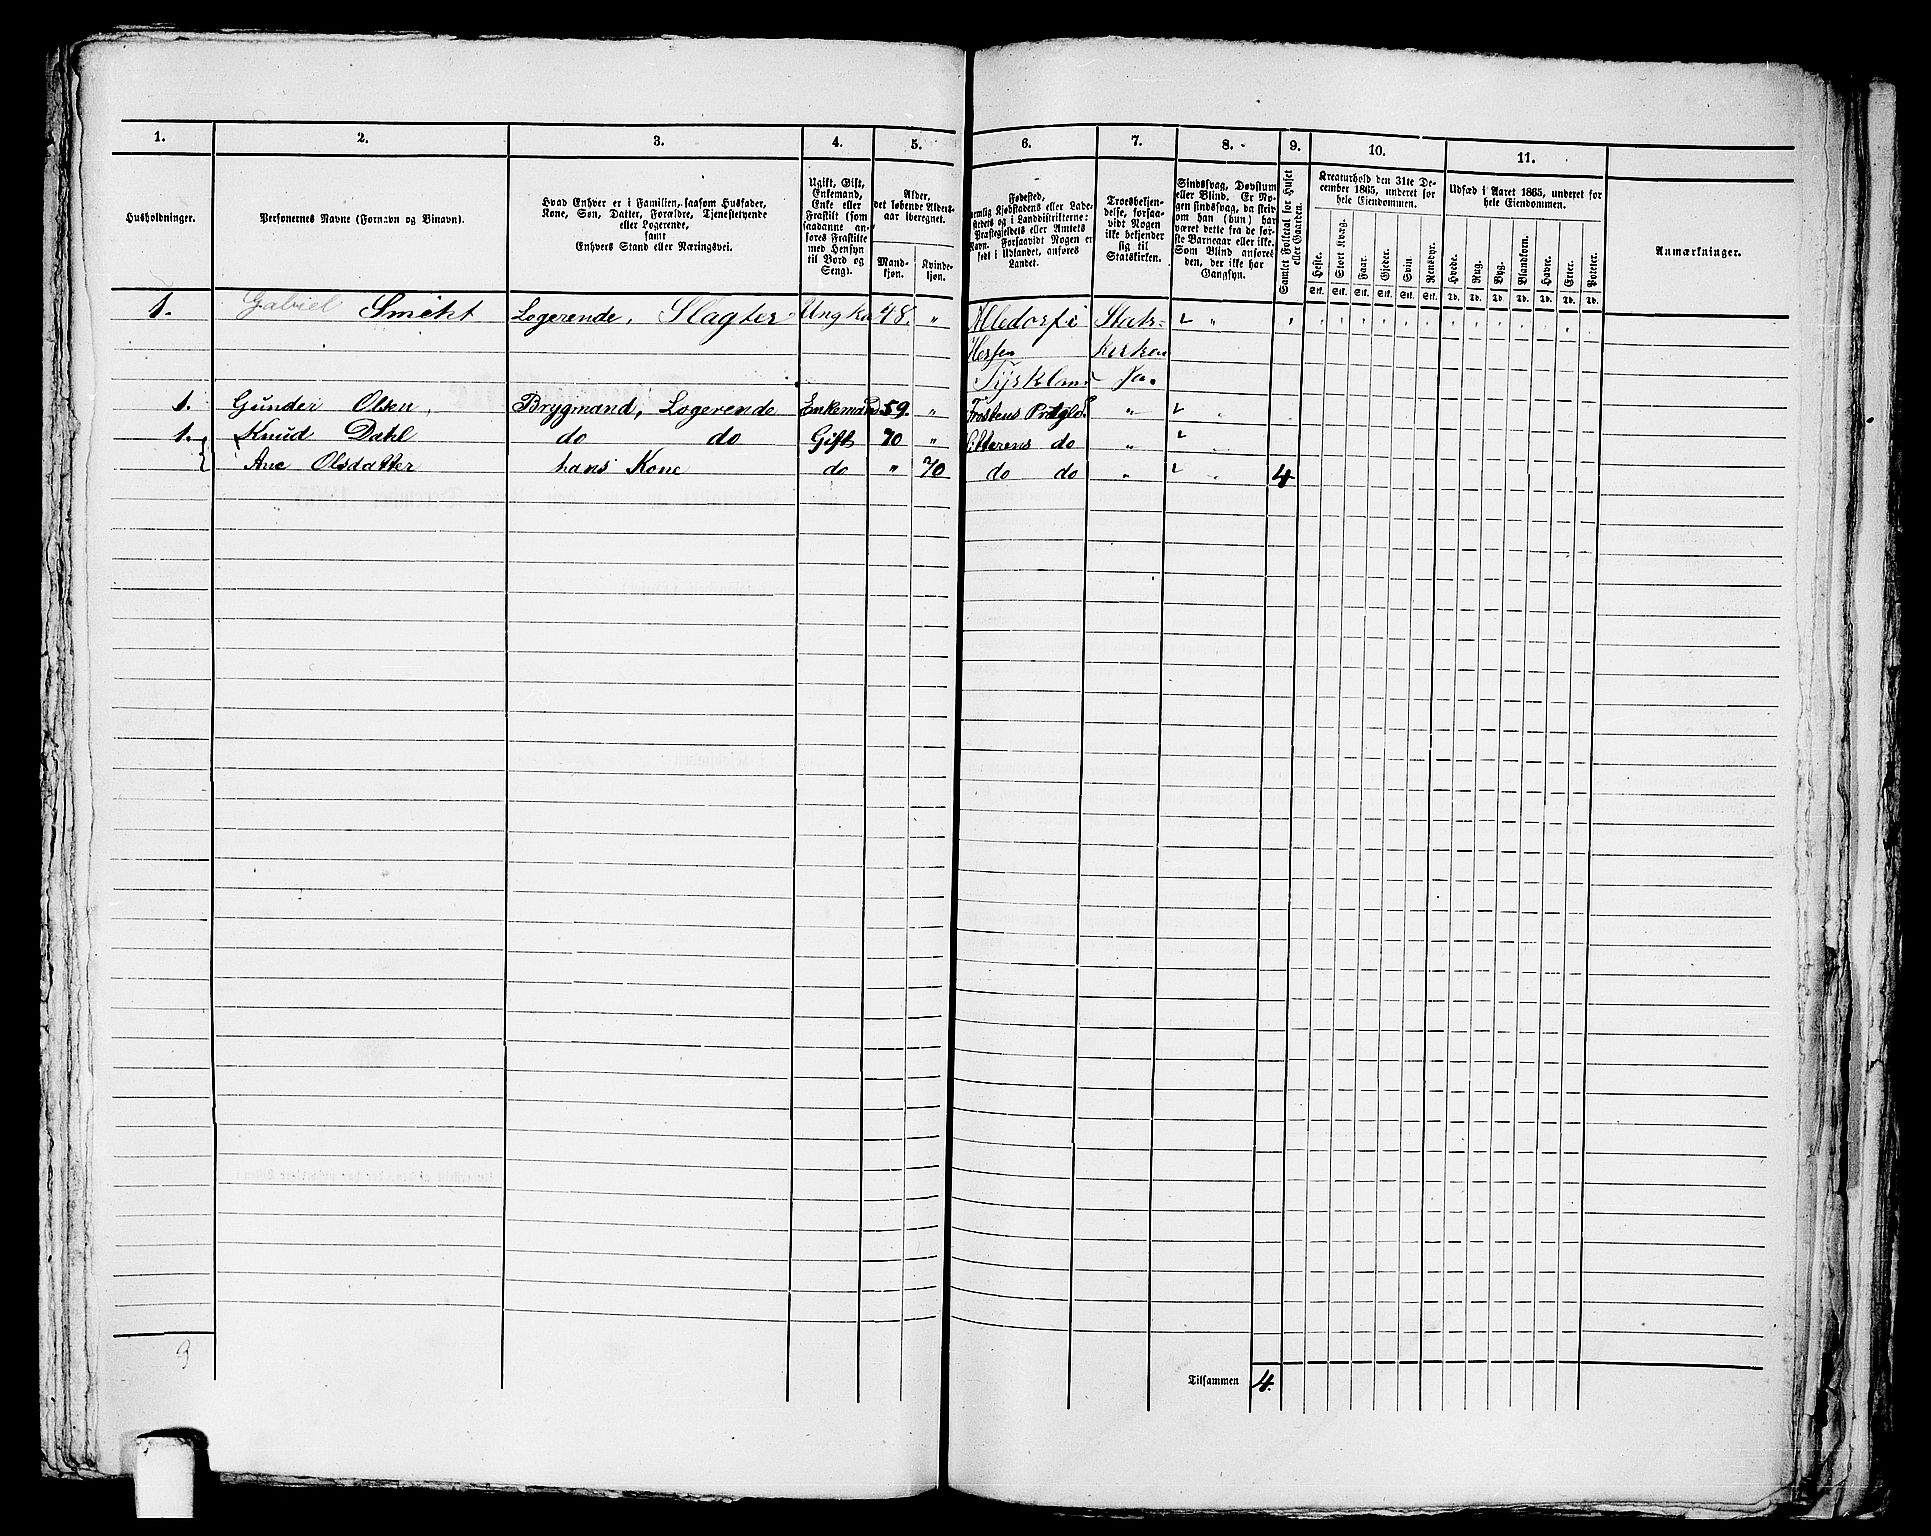 1. 2. 3. 4. 5. 6. 7. 8. 9. 10. 11.
Husholdninger.
Personernes Navne (Fornavn og Binavn).
Hvad Enhver er i Familien, saasom Husfader,
Kone, Søn, Datter, Forældre, Tjenestetyende
eller Logerende,
samt
Enhvers Stand eller Næringsvei.
Ugift, Gift,
Enkemand,
Enke eller
Fraskilt (som
saadanne an-
føres Fraskilte
med Hensyn
til Bord og
Seng).
Alder,
det løbende Alders-
aar iberegnet.
Mand-
kjøn.
Kvinde-
kjøn.
Fødested,
nemlig Kjøbstadens eller Lade-
stedets og i Landdistrikterne:
Præstegjeldets eller Amtets
Navn. Forsaavidt Nogen er
født i Udlandet, anføres
Landet.
Troesbekjen-
delse, forsaa-
vidt Nogen
ikke bekjender
sig til
Statskirken.
Sindssvag, Døvstum
eller Blind. Er No-
gen sindssvag, da skriv
om han (hun) har
været dette fra de før-
ste Barneaar eller ikke.
Som Blind anføres
den, der ikke har
Gangsyn.
Samlet Folketal for Huset
eller Gaarden.
Kreaturhold den 31te De-
cember 1865, underet for
hele Eiendommen.
Heste. Stort Kvæg. Faar. Gjeder. Svin. Rensdyr.
Stk. Stk. Stk. Stk. Stk. Stk.
Udsæd i Aaret 1865, underet for
hele Eiendommen.
Hvede. Rug. Byg. Blandkorn. Havre. Erter. Poteter.
Td. Td. Td. Td. Td. Td. Td.
Anmærkninger.
1. Gabriel Smikt Logerende, Slagter Ungka 48. " Alledorf i Stats-
Hessen Kirken
Tyskland Ja.
1. Gunder Olsen, Brygmand, Logerende Enkemand 59. " "
1. Knud Dahl do do Gift 70 " do "
Ane Olsdatter hans Kone do " 70 do do " 4
3
Tilsammen 4.